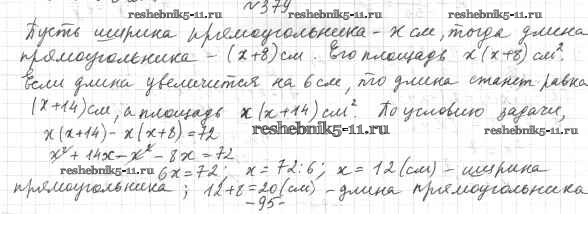 №379
reshebnik5-11.ru reshebnik5-11.ru
Пусть ширина прямоугольника - x см, тогда длина
прямоугольника - (x+8) см. Его площадь x(x+8) см².
Если длина увеличится на 6 см, то длина станет равна
(x+14) см, а площадь x(x+14) см². По условию задачи,
x(x+14) - x(x+8) = 72 reshebnik5-11.ru reshebnik5-11.ru
x² + 14x - x² - 8x = 72
reshebnik5-11.ru 6x = 72; x = 72:6; x = 12 (см) - ширина
прямоугольника; 12+8=20 (см) - длина прямоугольника
-95-